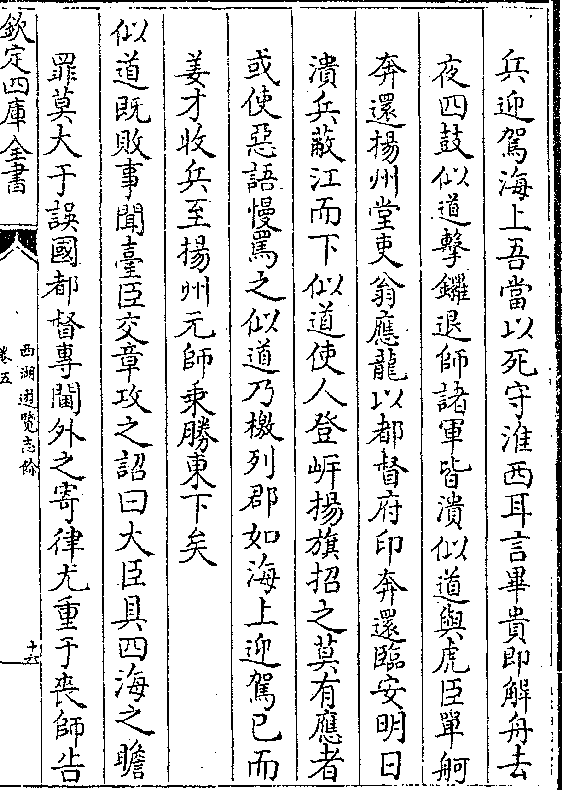 兵迎駕海上吾當以死守淮西耳言畢貴即解舟去
夜四鼓似道擊鑼退師諸軍皆潰似道與虎臣單舸
奔還揚州堂吏翁應龍以都督府印奔還臨安明日
潰兵蔽江而下似道使人登岍揚旗招之莫有應者
或使惡語慢罵之似道乃檄列郡如海上迎駕已而
姜才收兵至揚州元師乘勝東下矣
似道既敗事聞臺臣交章攻之詔曰大臣具四海之瞻
罪莫大于誤國都督專閫外之寄律尤重于喪師告
欽定四庫全書
西湖遊覽志餘
卷五
十六